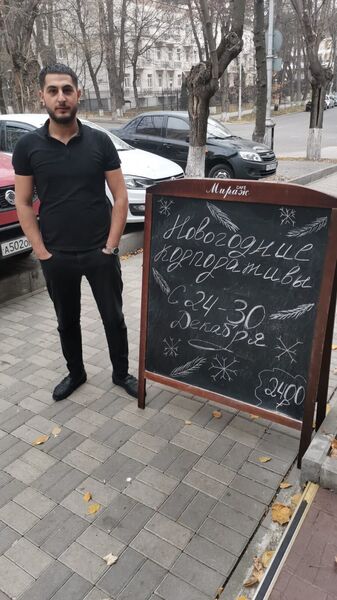 КАФЕ
Мираж
Новогодние
корпоративы
с 24-30
Декабря
2400
₽
А502О